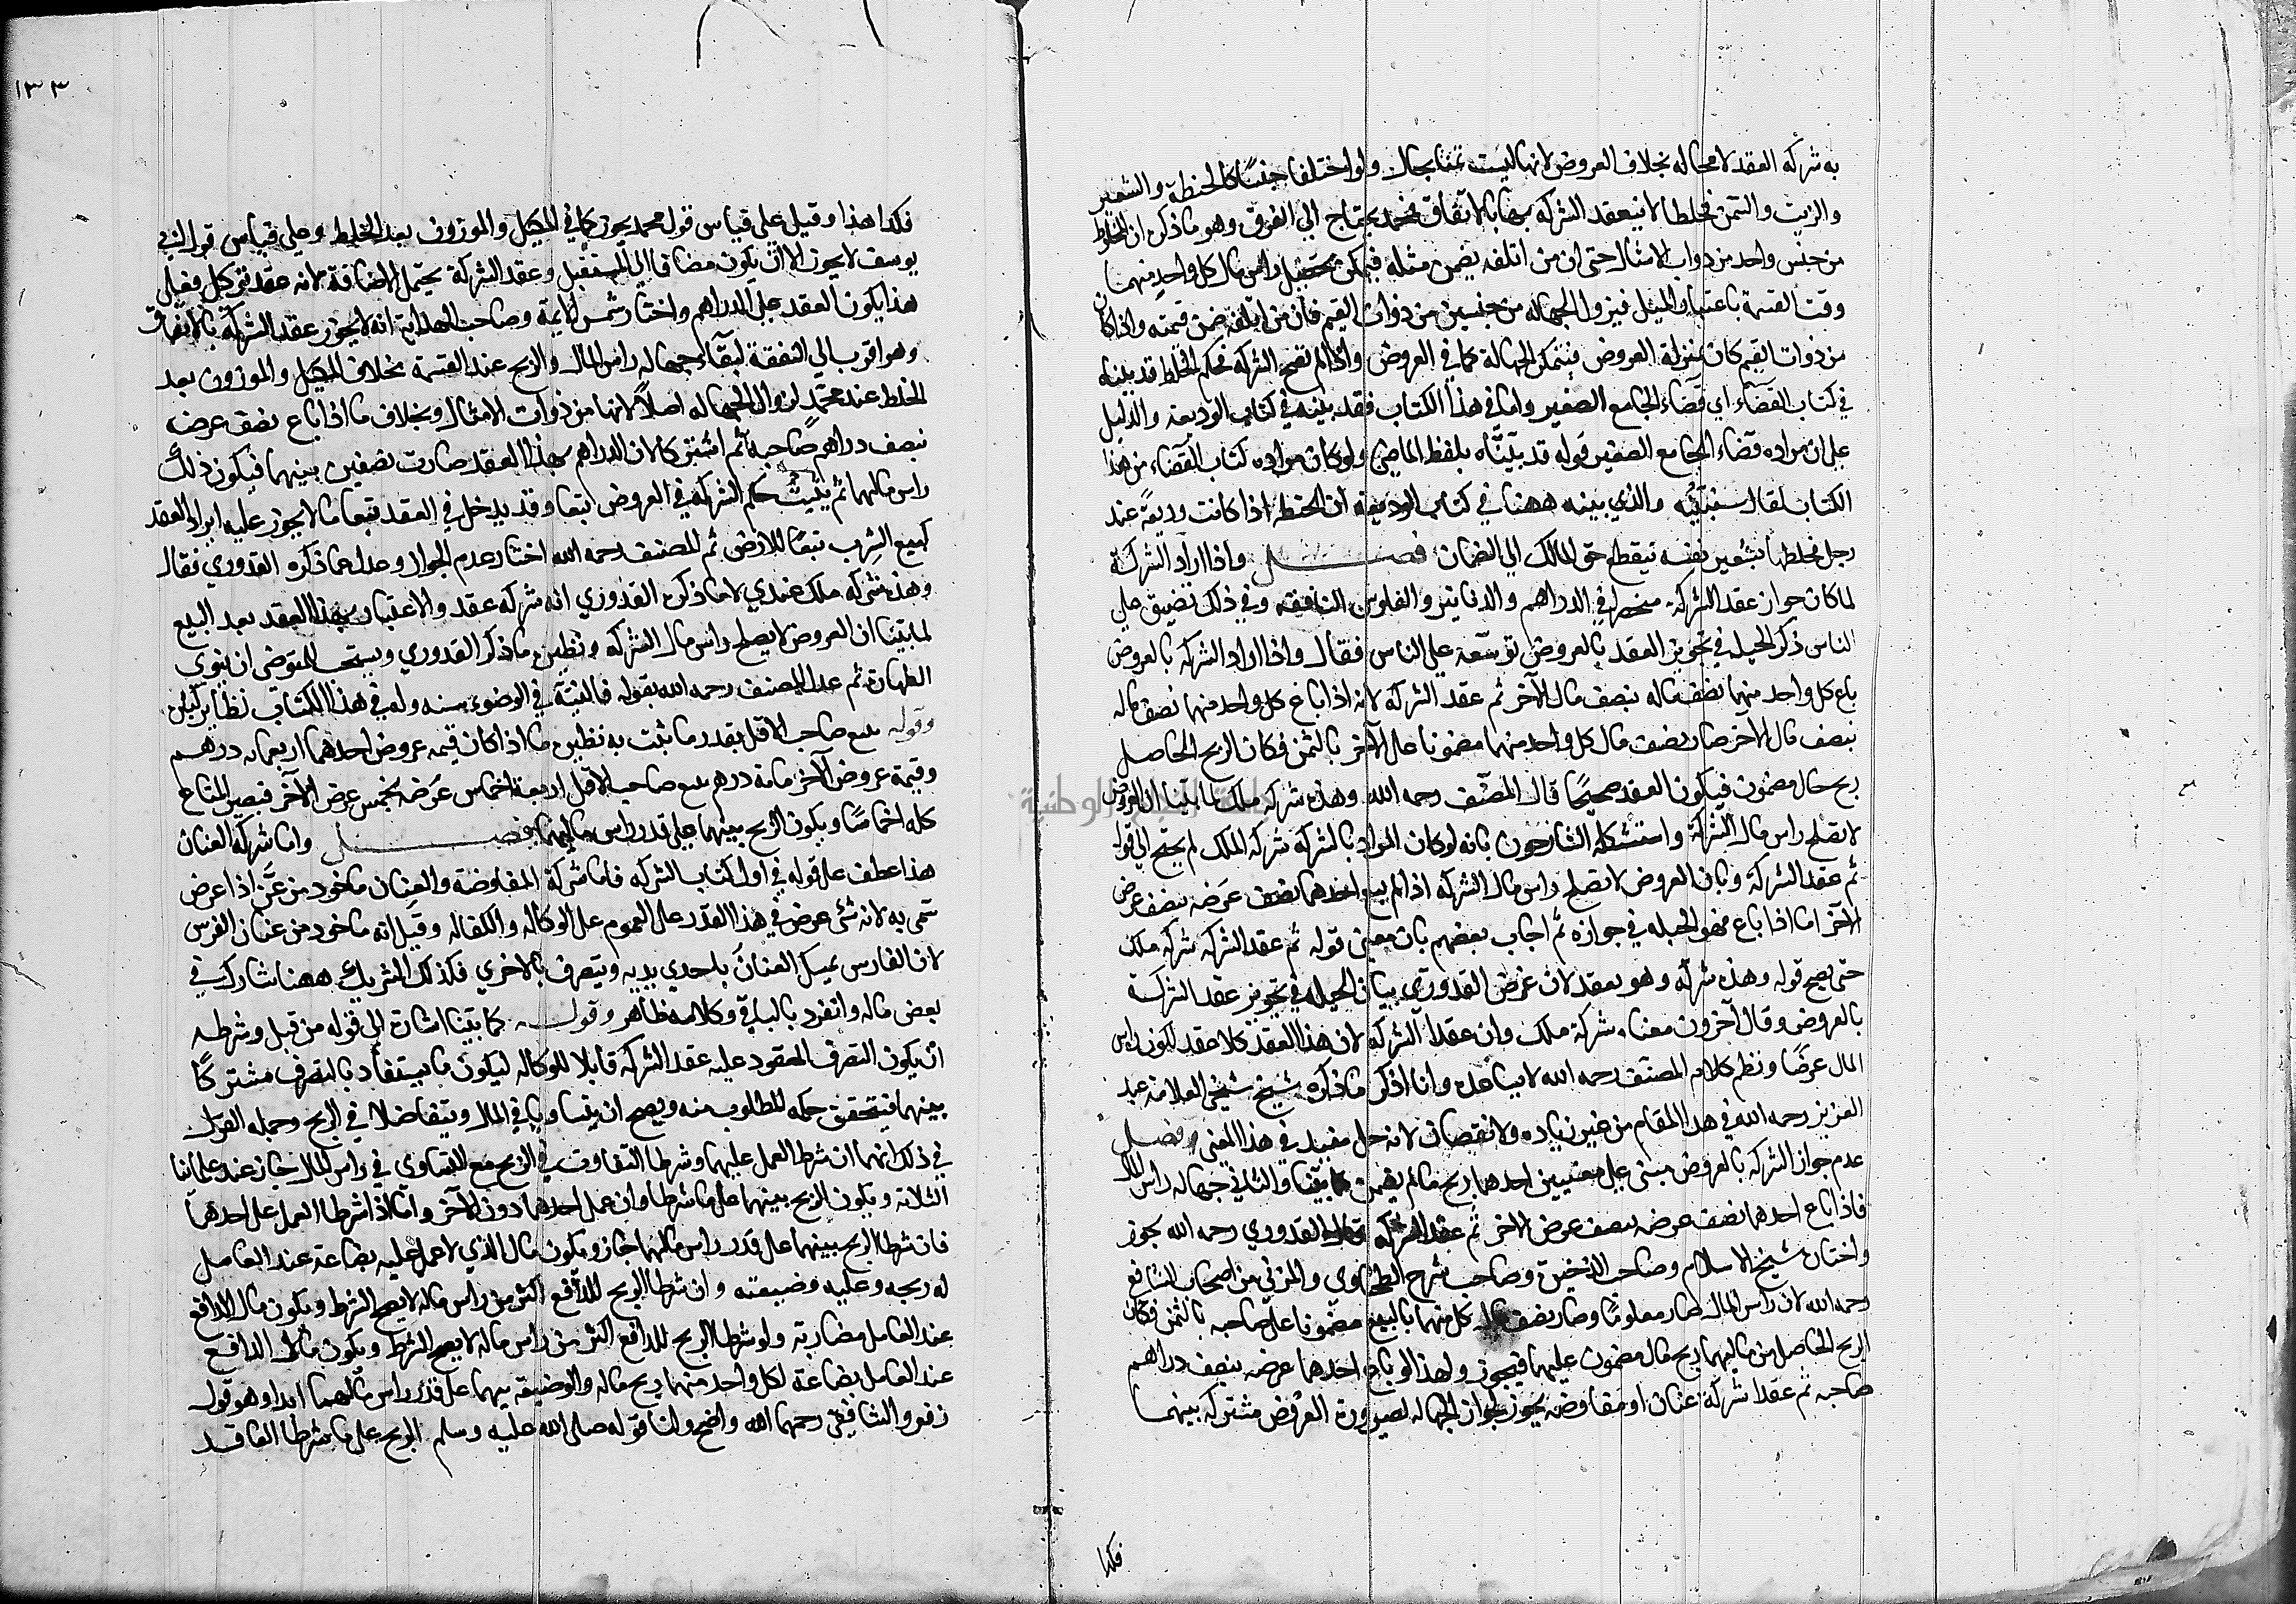 به شركة العقد لا محاله بخلاف العروض لانها ليست ثمنا بحال ولو اختلفا جنسًا كالحنطة والشعير
والزيت والسمن فخلطا لا ينعقد الشركة بها بالاتفاق فمحمد يحتاج الي الفرق وهو ما ذكره ان المخلوط
من جنس واحد من ذوات الامثال حتى ان من اتلفه يضمن مثله فيمكن تحصيل راس مال كل واحد منهما
وقت القسمة باعتبار المثل فيزول الجهاله من جنسين من ذوات القيم فان من اتلفه ضمن قيمته واذا كان
من ذوات القيم كان بمنزلة العروض فيتمكن الجهالة كما في العروض واذا لم تصح الشركة فحكم الخلط قد بيناه
في كتاب القضآء اي قضآء الجامع الصغير واما في هذا الكتاب فقد بينه في كتاب الوديعه والدليل
على ان مراده قضاء الجامع الصغير قوله قد بيّنّاه بلفظ الماضي ولو كان مراده كتاب القضاء من هذا
الكتاب لقال سنبيّنه والذي بينه ههنا في كتاب الوديعة ان الحنطه اذا كانت وديعةً عند
رجل فخلطها بشعير نفسه ينقطع حق المالك الي الضمان فصل واذا اراد الشركة
لما كان جواز عقد الشركة منحصرا في الدراهم والدنانير والفلوس النافقه وفي ذلك تضييق على
الناس ذكر الحيله في تجويز العقد بالعروض توسعة علي الناس فقال واذا اراد الشركه بالعروض
باع كل واحد منهما نصف ماله بنصف مال الآخر ثم عقد الشركه لانه اذا باع كل واحد منهما نصف ماله
بنصف مال الآخر صار نصف مال كل واحد منهما مضمونا على الآخر بالثمن فكان الربح الحاصل
ربح مال مضمون فيكون العقد صحيحًا قال المصنّف رحمه الله وهذه شركة ملك لما بيّنا ان العروض
لا تصلح راس مال الشركة واستشكله الشارحون بانه لو كان المراد بالشركة شركة الملك لم يحتج الي قوله
ثم عقد الشركة وبان العروض لا تصلح راس مال الشركه اذا لم يبع احدهما نصف عَرَضه بنصف عرض
الآخر اما اذا باع فهو الحيله في جوازه ثم اجاب بعضهم بان معنى قوله ثم عقد الشركه شركة ملك
حتى يصح قوله وهذه شركة وهو بعقد لان غرض القدوري بيان الحيله في تجويز عقد الشركة
بالعروض وقال آخرون معناه شركة ملك وان عقدا الشركه لان هذا العقد كلا عقد لكون راس
المال عرضًا ونظم كلام المصنف رحمه الله لا يساعده وانا اذكر ما ذكره شيخ شيخي العلامة عبد
العزيز رحمه الله في هذا المقام من غير زياده ولا نقصان لانه حل مفيد في هذا المعنى فصل
عدم جواز الشركه بالعروض مبنى على معنيين احدهما ربح ما لم يضمن كما بيّنا والثاني جهاله راس المال
فاذا باع احدهما نصف عرضه بنصف عرض الآخر ثم عقد الشركه قال القدوري رحمه الله يجوز
واختاره شيخ الاسلام وصاحب الذخيرة وصاحب شرح الطحاوي والمزني من اصحاب الشافعي
رحمه الله لان راس المال صار معلومًا وصار نصف مال كل منهما بالبيع مضمونا على صاحبه بالثمن فكان
الربح الحاصل من ماليهما ربح مال مضمون عليهما فيجوز ولهذا لو باع احدهما عرضه بنصف دراهم
صاحبه ثم عقدا شركة عنان او مفاوضه يجوز لجواز الجهاله لصيرورة العروض مشتركه بينهما
فكذا
١٣٣
فكذا هذا وقيل على قياس قول محمد يجوز كما في المكيل والموزون بعد الخلط وعلى قياس قول ابي
يوسف لا يجوز الا ان يكون مضافا الي المستقبل وعقد الشركة يحتمل الاضافة لانه عقد توكيل فعلى
هذا يكون العقد على الدراهم واختار شمس الايمة وصاحب الهداية انه لا يجوز عقد الشركة بالاتفاق
وهو اقرب الي التفقة لبقآء جهاله راس المال والربح عند القسمة بخلاف المكيل والموزون بعد
الخلط عند محمّد لزوال الجهاله اصلاً لانها من ذوات الامثال وبخلاف ما اذا باع نصف عرضه
بنصف دراهم صاحبه ثم اشتركا لان الدراهم بهذا العقد صارت نصفين بينهما فيكون ذلك
راس مالهما ثم يثبت حكم الشركه في العروض تبعا وقد يدخل في العقد تبعا ما لا يجوز عليه ايراد العقد
كبيع الشرب تبعًا للارض ثم المصنف رحمه الله اختار عدم الجواز وعدل عما ذكره القدوري فقال
وهذه شركة ملك عندي لا ما ذكره القدوري انه شركة عقد والاعتبار بهذا العقد بعد البيع
لما بيّنا ان العروض لا يصلح راس مال الشركه ونظيره ما ذكر القدوري ويستحب للمتوضى ان ينوي
الطهارة ثم عدل المصنف رحمه الله بقوله فالنيّة في الوضوء سنه وله في هذا الكتاب نظاير كثيره
وقوله بيع صاحب الاقل بقدر ما ثبت به نظيره ما اذا كان قيمه عروض احدهما اربعمائه درهم
وقيمة عروض الآخر مائة درهم يبيع صاحب الاقل اربعة اخماس عَرَضه بخمس عرض الآخر فيصير المتاع
كله اخماسًا ويكون الربح بينهما على قدر راس ماليهما فصل واما شركة العنان
هذا عطف على قوله في اول كتاب الشركه فاما شركة المفاوضة والعِنان ماخوذ من عَنَّ اذا عرض
سمي به لانه شئ عرض في هذا القدر على العموم على الوكاله والكفاله وقيل انه ماخوذ من عنان الفرس
لان الفارس يمسك العنانَ باحدي يديه ويتصرف بالاخري فكذلك الشريك ههنا شارك في
بعض ماله وانفرد بالباقي وكلامه ظاهر وقوله كما بيّنا اشارة الي قوله من قبل وشرطه
ان يكون التصرف المعقود عليه عقد الشركة قابلا للوكاله ليكون ما يستفاد بالتصرف مشتركًا
بينهما فيتحقق حكمه المطلوب منه ويصح ان يتساويا في المال ويتفاضلا في الربح وجمله القول
في ذلك انهما ان شرطا العمل عليهما وشرطا التفاوت في الربح مع التساوي في راس المال جاز عند علمائنا
الثلاثة ويكون الربح بينهما على ما شرطا وان عمل احدهما دون الآخر واما اذا شرطا العمل على احدهما
فان شرطا الربح بينهما على قدر راس مالهما جاز ويكون مال الذي لا عمل عليه بضاعة عند العامل
له ربحه وعليه وضيعته وان شرطا الربح للدافع اكثر من راس ماله لا يصح الشرط ويكون مال الدافع
عند العامل مضاربة ولو شرطا الربح للدافع اكثر من راس ماله لا يصح الشرط ويكون مال الدافع
عند العامل بضاعة لكل واحد منهما ربح ماله والوضيعة بينهما على قدر راس مالهما ابدا وهو قول
زفر والشافعي رحمهما الله واضح ولنا قوله صلى الله عليه وسلم الربح على ما شرطا العاقد